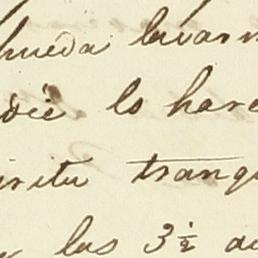 hueda lavarm
die lo hare
iritu tranqu
las 3½ de